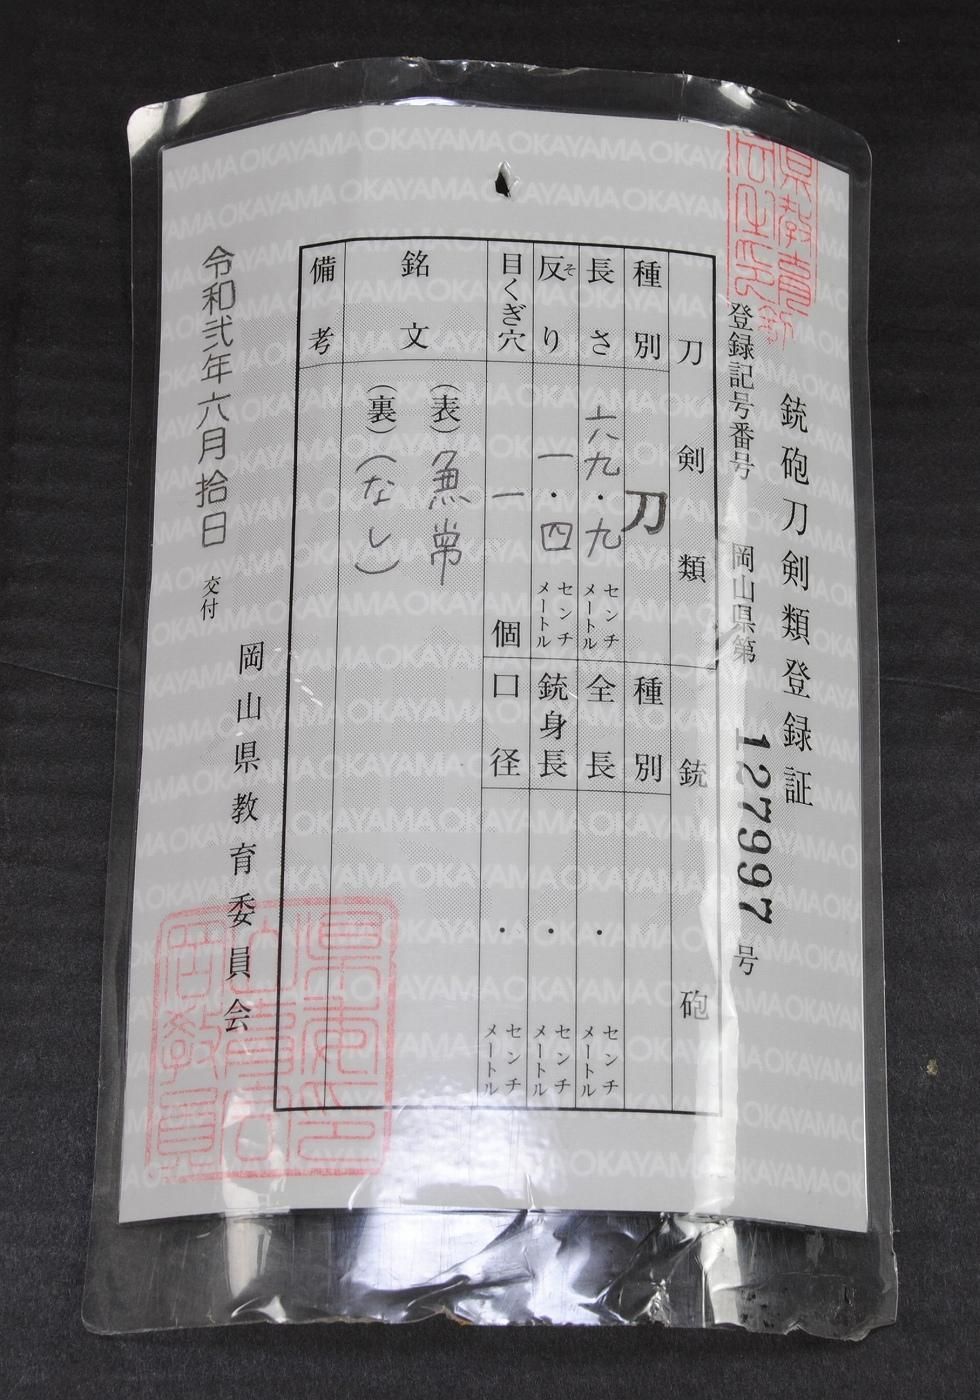 銃砲刀剣類登録証
登録記号番号 岡山県第 127997 号
刀剣類
種別 刀
長さ 六九・九 センチメートル
反り 一・四 センチメートル
そ
目くぎ穴 一 個
銘文
(表) 兼常
(裏) (なし)
備考
銃砲
種別
全長 ・ センチメートル
銃身長 ・ センチメートル
口径 ・ センチメートル
令和弐年六月拾日 交付
岡山県教育委員会
OKAYAMA